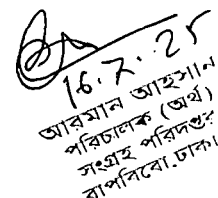 16.7.25
আরমান আহসান
পরিচালক (অর্থ)
সংগ্রহ পরিদপ্তর
বাপবিবো, ঢাকা